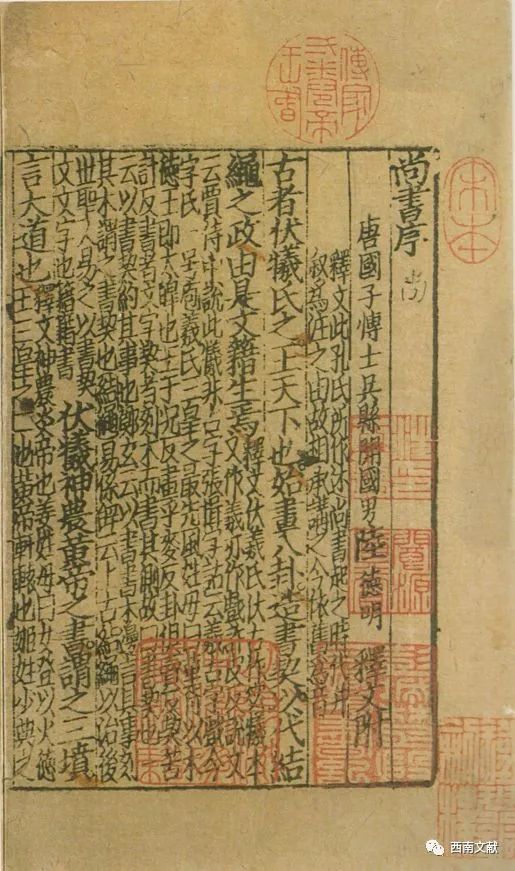 尚書序
唐國子愽士吳縣開國男陸德明釋文附
釋文此孔氏所作述尚書起之時代并
叙為注之由故相承講之今依舊為音
古者伏犧氏之王天下也始畫八卦造書契以代結
繩之政由是文籍生焉
釋文伏犧氏伏古作虙犧本
又作羲亦作戲許皮反說文
云賈侍中說此犧非古字張揖字詁云羲古字戲今
字氏一号庖羲氏三皇之最先風姓母曰華胥以木
德王即太皞也王于况反畫乎麥反卦俱賣反契苦
計反書者文字契者刻木而書其側故曰書契也一
云以書契約其事也鄭玄云以書書木邊言其事刻
其木謂之書契也結繩易係辭云上古結繩以治後
世聖人易之以書契
文文字也籍籍書
伏犧神農黃帝之書謂之三墳
言大道也
釋文神農炎帝也姜姓母曰女登以火德
王三皇之二也黃帝軒轅也姬姓少典之
宋本
閬源
西南文献